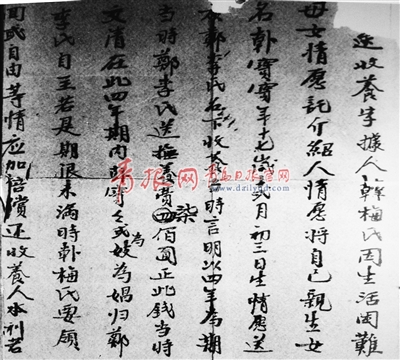 送收養字據人韓梅氏因生活困難
母女情愿託介紹人情愿將自己親生女
名韓寶寶年十七歲弍月初三日生情愿送
鄭李氏名下收養當時言明以四年為期
當時鄭李氏送撫養賞四佰圓正此錢當時
柒
交清在此四年期內或妓為娼归鄭
李氏自主若是期限未滿時韓梅氏要領
回或自由等情应加賠賞还收養人本利若
青报网
www.dailyqd.com